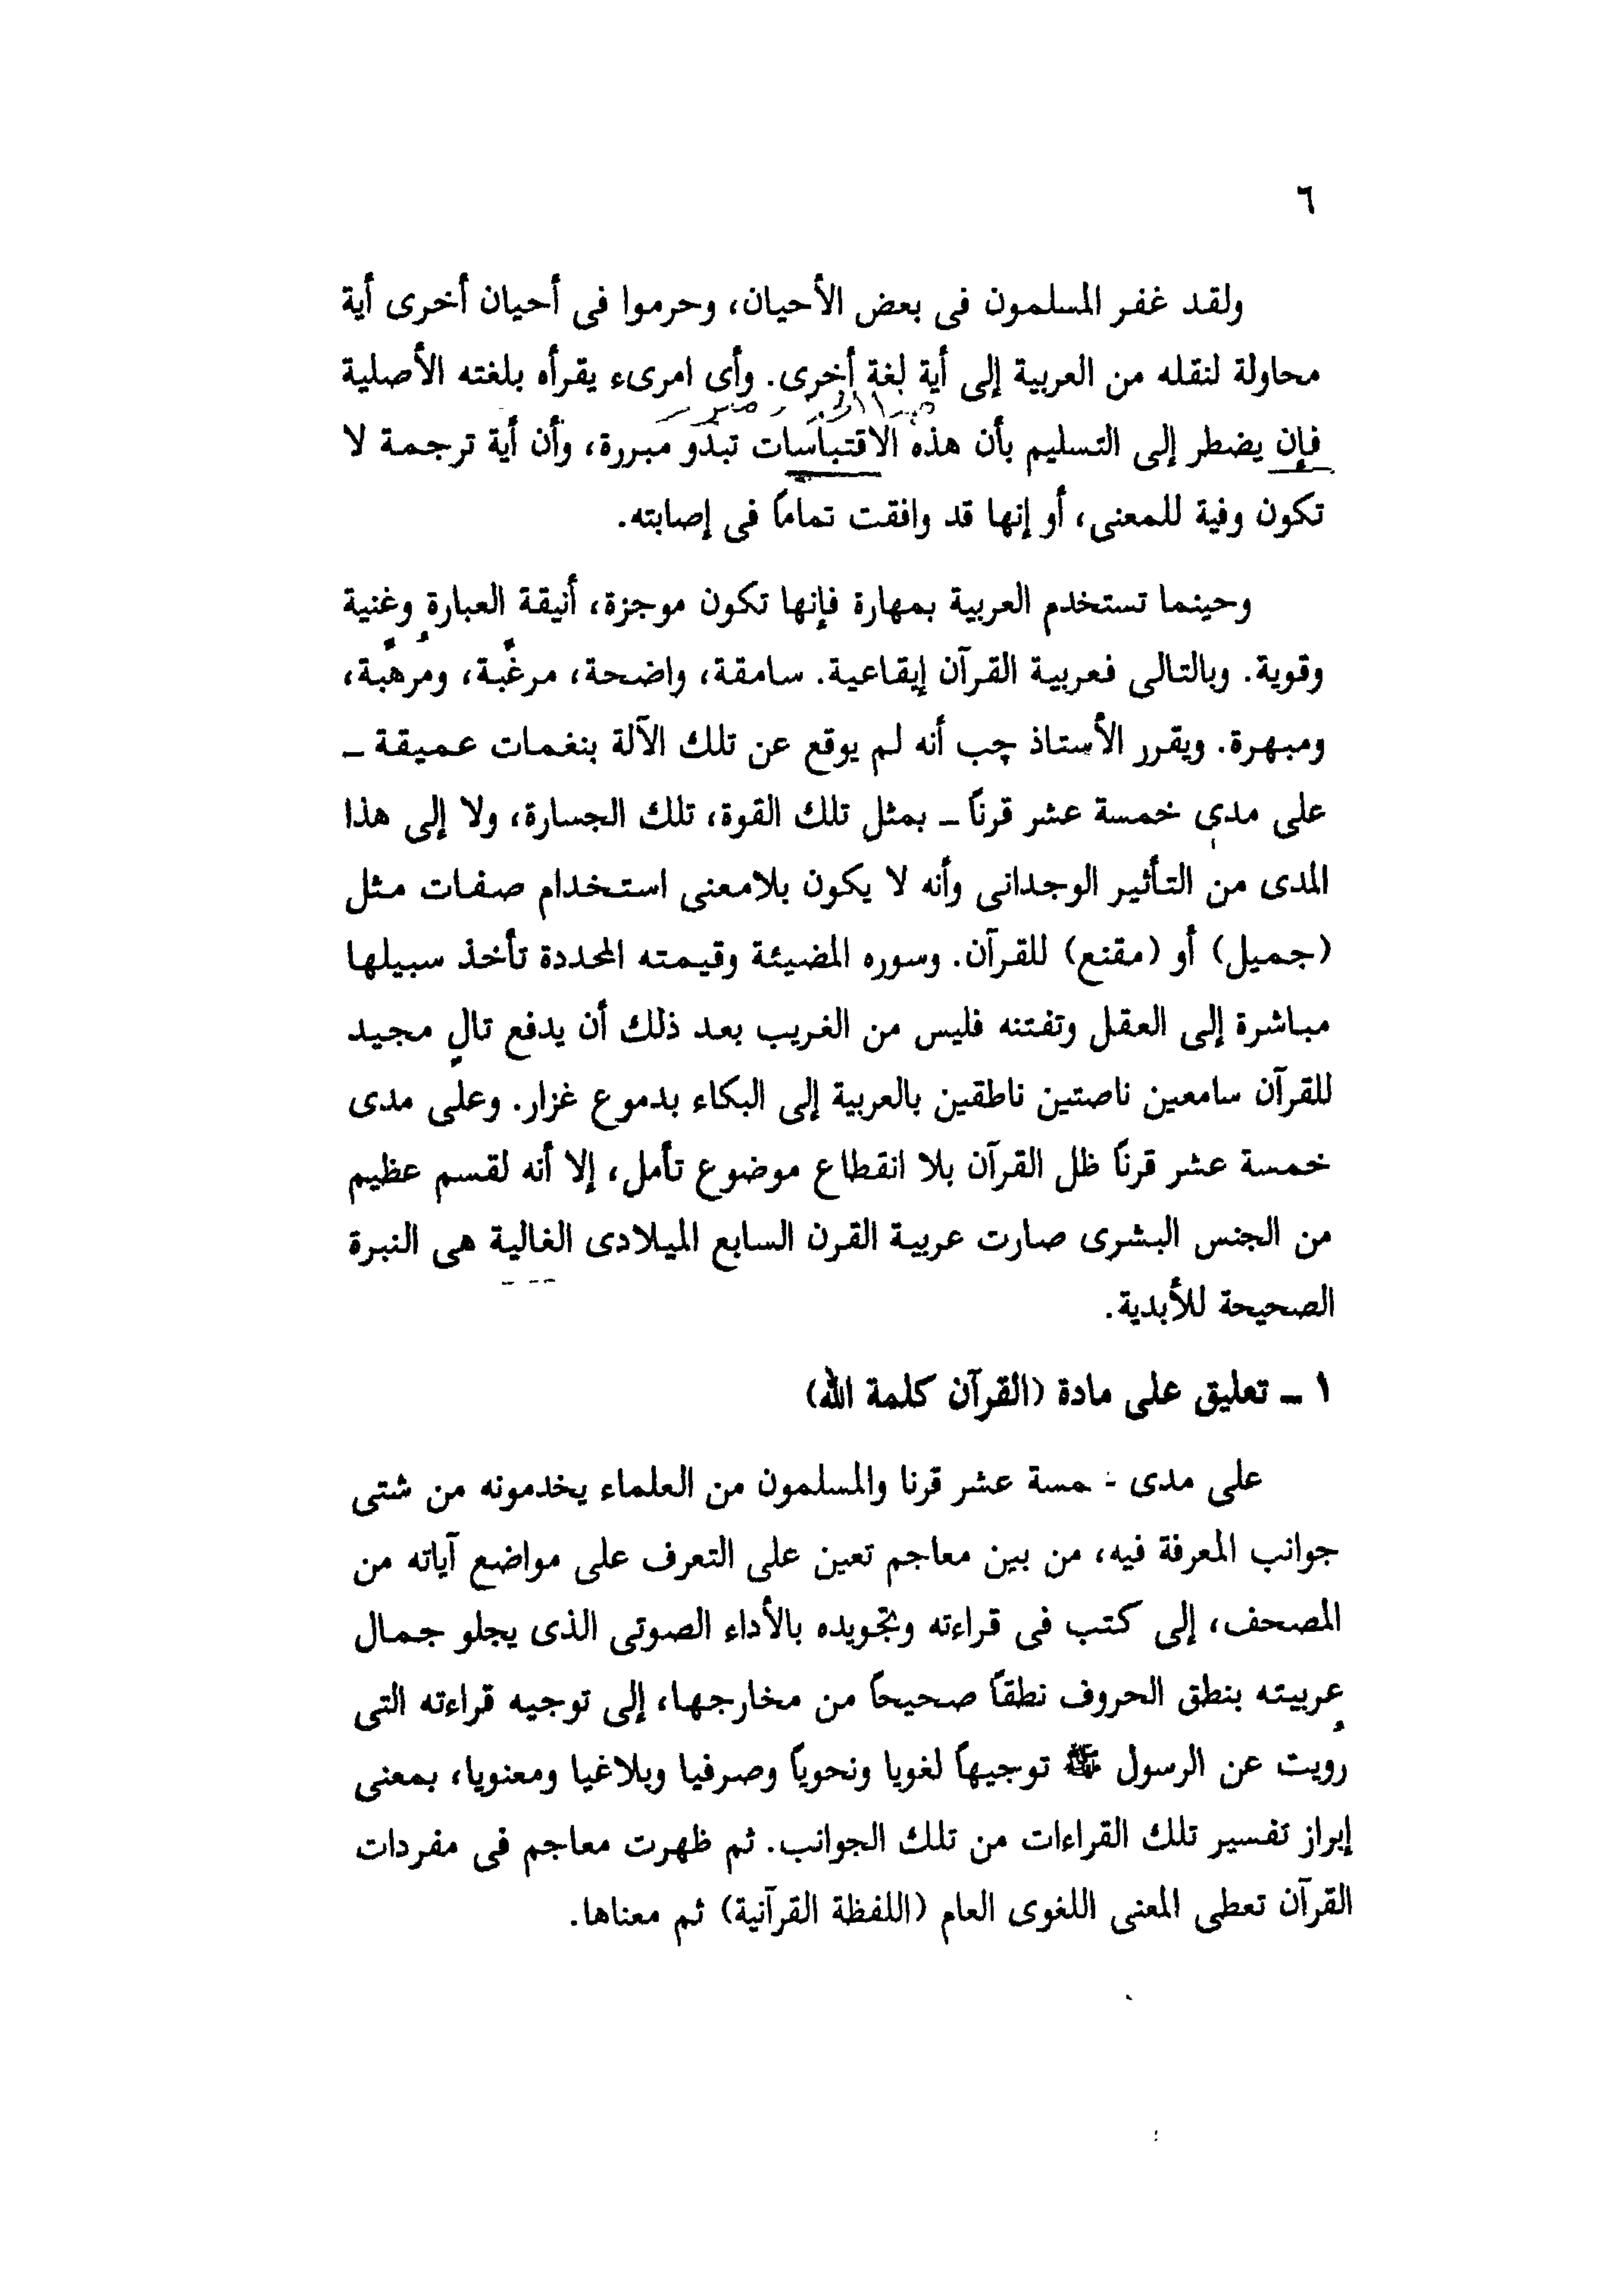 ٦
ولقد غفر المسلمون فى بعض الأحيان، وحرموا فى أحيان أخرى أية
محاولة لنقله من العربية إلى أية لغة أخرى. وأى امرىء يقرأه بلغته الأصلية
فإن يضطر إلى التسليم بأن هذه الاقتباسات تبدو مبررة، وأن أية ترجمة لا
تكون وفية للمعنى، أو إنها قد وافقت تماماً فى إصابته.
وحينما تستخدم العربية بمهارة فإنها تكون موجزة، أنيقة العبارة وغنية
وقوية. وبالتالى فعربية القرآن إيقاعية. سامقة، واضحة، مرغِّبة، ومرهِّبة،
ومبهرة. ويقرر الأستاذ چب أنه لم يوقع عن تلك الآلة بنغمات عميقة ـ
على مدى خمسة عشر قرناً ـ بمثل تلك القوة، تلك الجسارة، ولا إلى هذا
المدى من التأثير الوجدانى وأنه لا يكون بلامعنى استخدام صفات مثل
(جميل) أو (مقنع) للقرآن. وسوره المضيئة وقيمته المحددة تأخذ سبيلها
مباشرة إلى العقل وتفتنه فليس من الغريب بعد ذلك أن يدفع تالٍ مجيد
للقرآن سامعين ناصتين ناطقين بالعربية إلى البكاء بدموع غزار. وعلى مدى
خمسة عشر قرناً ظل القرآن بلا انقطاع موضوع تأمل، إلا أنه لقسم عظيم
من الجنس البشرى صارت عربية القرن السابع الميلادى الغالية هى النبرة
الصحيحة للأبدية.
١ ـ تعليق على مادة (القرآن كلمة الله)
على مدى خمسة عشر قرنا والمسلمون من العلماء يخدمونه من شتى
جوانب المعرفة فيه، من بين معاجم تعين على التعرف على مواضع آياته من
المصحف، إلى كتب فى قراءته وتجويده بالأداء الصوتى الذى يجلو جمال
عربيته بنطق الحروف نطقاً صحيحاً من مخارجها، إلى توجيه قراءته التى
رويت عن الرسول ﷺ توجيهاً لغويا ونحوياً وصرفيا وبلاغيا ومعنويا، بمعنى
إبراز تفسير تلك القراءات من تلك الجوانب. ثم ظهرت معاجم فى مفردات
القرآن تعطى المعنى اللغوى العام (اللفظة القرآنية) ثم معناها.